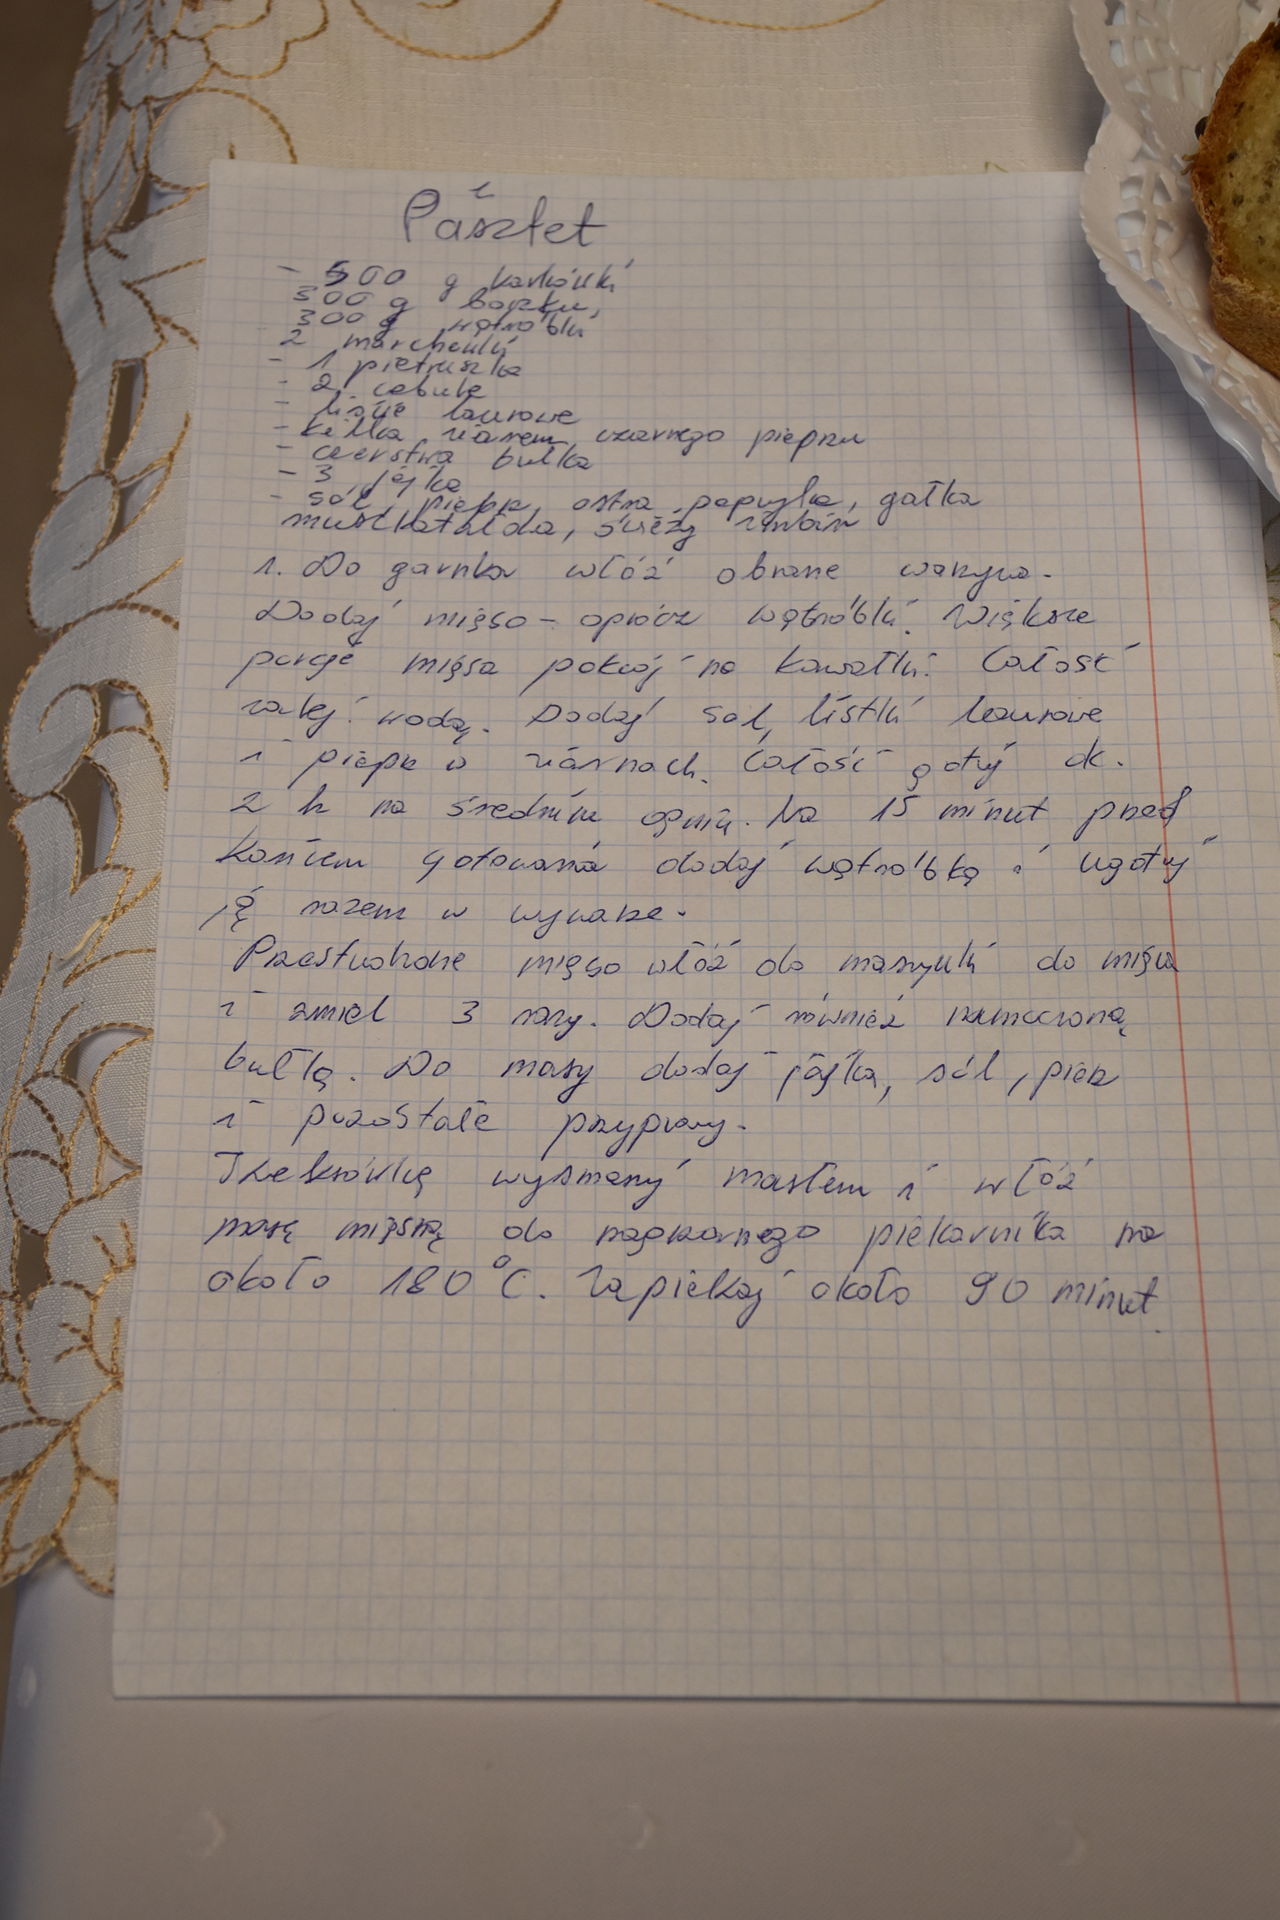 Pasztet
- 500 g karkówki
300 g boczku,
300 g wątróbki
2 marchewki
- 1 pietruszka
- 2 cebule
- liście laurowe
- kilka ziaren czarnego pieprzu
- czerstwa bułka
- 3 jajka
- sól, pieprz, ostra papryka, gałka
muszkatałowa, świeży
1. Do garnka włóż obrane warzywa.
Dodaj mięso - oprócz wątróbki. Większe
porcje mięsa pokrój na kawałki. Całość
zalej wodą. Dodaj sól, listki laurowe
i pieprz w ziarnach. Całość gotuj ok.
2 h na średnim ogniu. Na 15 minut przed
końcem gotowania dodaj wątróbkę i ugotuj
ją razem w wywarze.
Przestudzone mięso włóż do maszynki do mięsa
i zmiel 3 razy. Dodaj również namoczoną
bułkę. Do masy dodaj jajka, sól, pierz
i pozostałe przyprawy.
wysmaruj masłem i włóż
masę mięsną do nagrzanego piekarnika na
około 180°C. Zapiekaj około 90 minut.